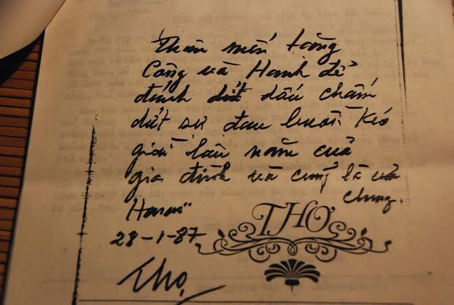 Thân mến tặng
Công và Hạnh để
đánh dấu chấm
dứt sự đau buồn kéo
dài lâu năm của
gia đình và cũng là của
chung.
Hawaii
28-1-87
THƠ
Thọ